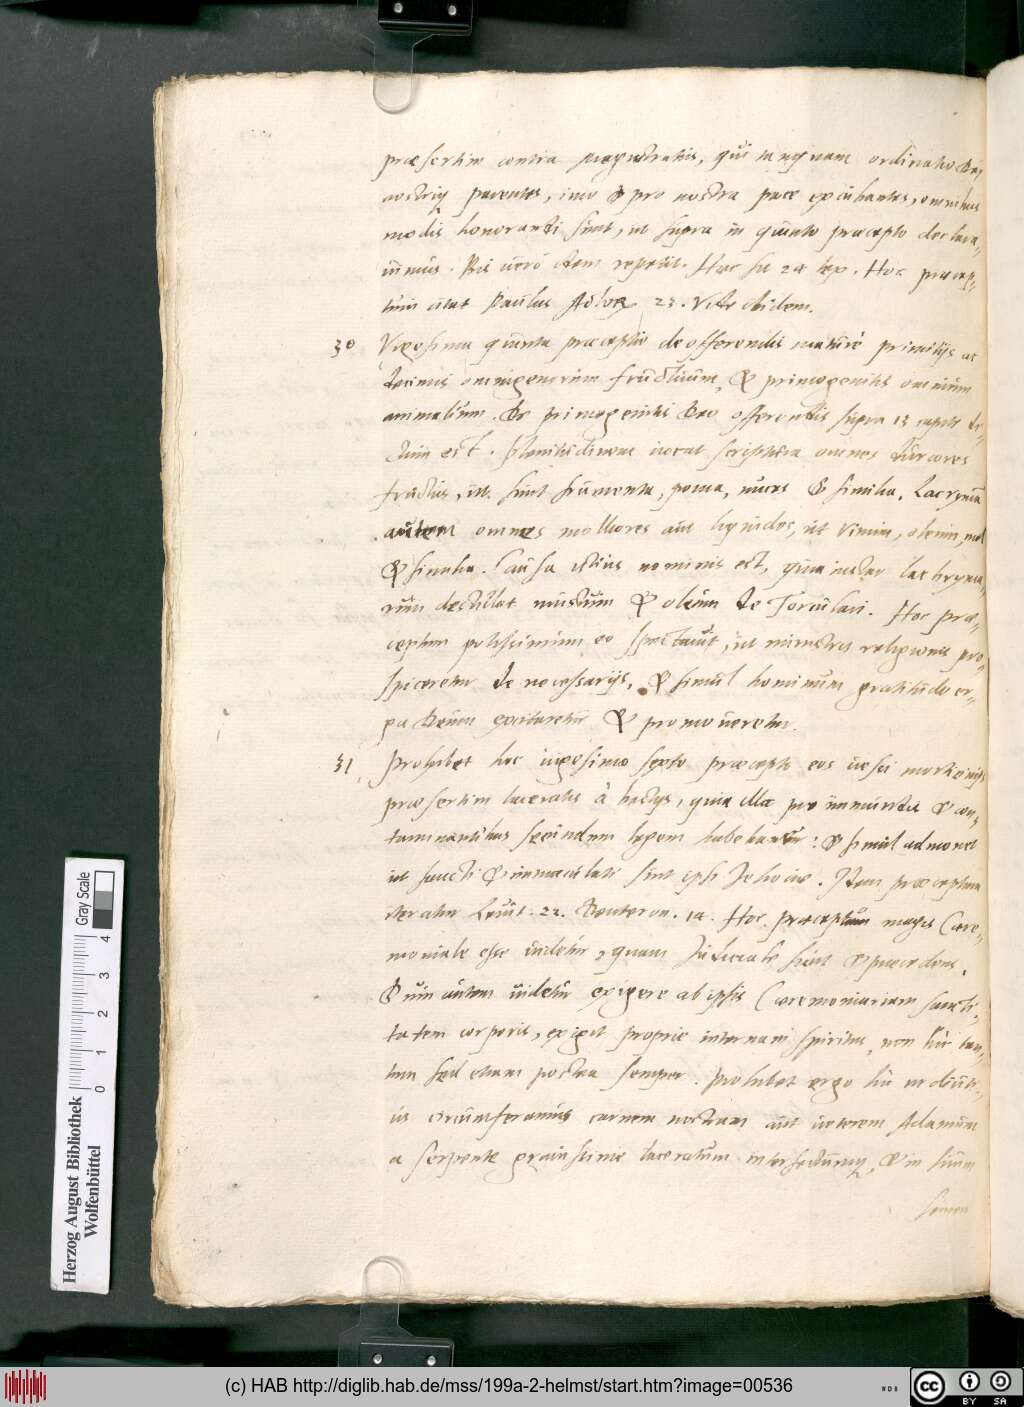 præsertim contra magistratus, qui tanquam ordinatio Dei
nostriq parentes, imo & pro nostra pace excubantes, omnibus
modis honorandi sunt, ut supra in quinto præcepto declara-
uimus. Bis uero idem repetit. Hæc sit 24 lex. Hoc præcep-
tum citat Paulus Actor 23. Vide ibidem.
30 Vigesima quinta præceptio de offerendis mature primitijs ac
decimis omnigenarum fructuum, & primogenitis omnium
animalium. De primogenitis Deo offerendis supra 13 capite di-
ctum est. Plenitudinem uocat scriptura omnes duriores
fructus, ut sunt frumenta, poma, nuces & similia. Lacryma
autem omnes molliores aut liquidos, ut vinum, oleum, mel
& similia. Causa istius nominis est, quia instar lachryma-
rum destillat mustum & oleum de Torculari. Hoc præ-
ceptum potissimum eo spectauit, ut ministris religionis pro-
spiceretur de necessarijs, & simul hominum gratitudo er-
ga Deum excitaretur & promoueretur.
31 Prohibet hoc uigesimo sexto præcepto eos uesci morticinijs
præsertim laceratis à bestijs, quia illa pro immundis & con-
taminantibus secundum legem habebantur: & simul admonet
ut sancti & immaculati sint ipsi Jehouæ. Idem præceptum
iteratur Leuit. 22. Deuteron. 14. Hoc præceptum magis Cære-
moniale esse uidetur, quam Judiciale sicut & præcedens.
Cum autem uidetur exigere ab ipsis Cæremoniariam sancti-
tatem corporis, exigit proprie internam spiritus, non hic tan-
tum sed etiam postea semper. Prohibet ergo hic ne diuti-
us circumferamus carnem nostram aut ueterem Adamum
a serpente grauissime laceratum interfectumq, & in suum
semen
Herzog August Bibliothek
Wolfenbüttel
Gray Scale
0 1 2 3 4
(c) HAB http://diglib.hab.de/mss/199a-2-helmst/start.htm?image=00536
cc BY SA